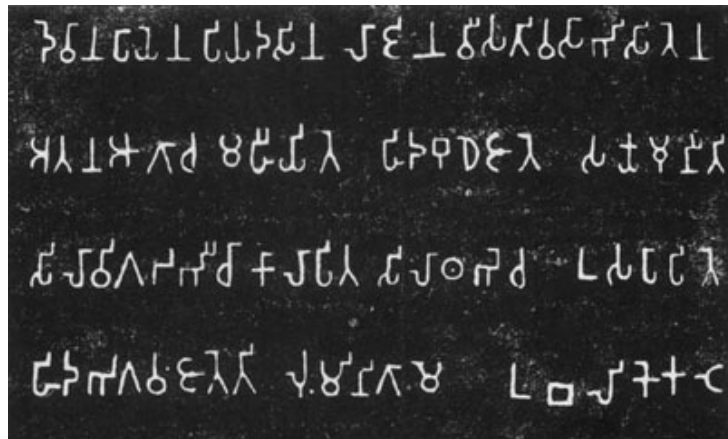 𑀤𑁂𑀯𑀸𑀦𑀧𑀺𑀬𑁂𑀦 𑀧𑀺𑀬𑀤𑀲𑀺𑀦 𑀮𑀸𑀚𑀺𑀦 𑀯𑀻𑀲𑀢𑀺𑀯𑀲𑀸𑀪𑀺𑀲𑀺𑀢𑁂𑀦
𑀅𑀢𑀦𑀆𑀕𑀸𑀘 𑀫𑀳𑀻𑀬𑀺𑀢𑁂 𑀳𑀺𑀤𑀩𑀼𑀥𑁂𑀚𑀸𑀢𑁂 𑀲𑀓𑁆𑀬𑀫𑀼𑀦𑀻𑀢𑀺
𑀲𑀺𑀮𑀸𑀯𑀺𑀕𑀟𑀪𑀺𑀘𑀸𑀓𑀸𑀮𑀸𑀧𑀺𑀢 𑀲𑀺𑀮𑀸𑀣𑀪𑁂𑀘 𑀉𑀲𑀧𑀸𑀧𑀺𑀢𑁂
𑀳𑀺𑀤𑀪𑀕𑀯𑀁𑀚𑀸𑀢𑁂𑀢𑀺 𑀮𑀼𑀁𑀫𑀺𑀦𑀺𑀕𑀸𑀫𑁂 𑀉𑀩𑀮𑀺𑀓𑁂𑀓𑀝𑁂